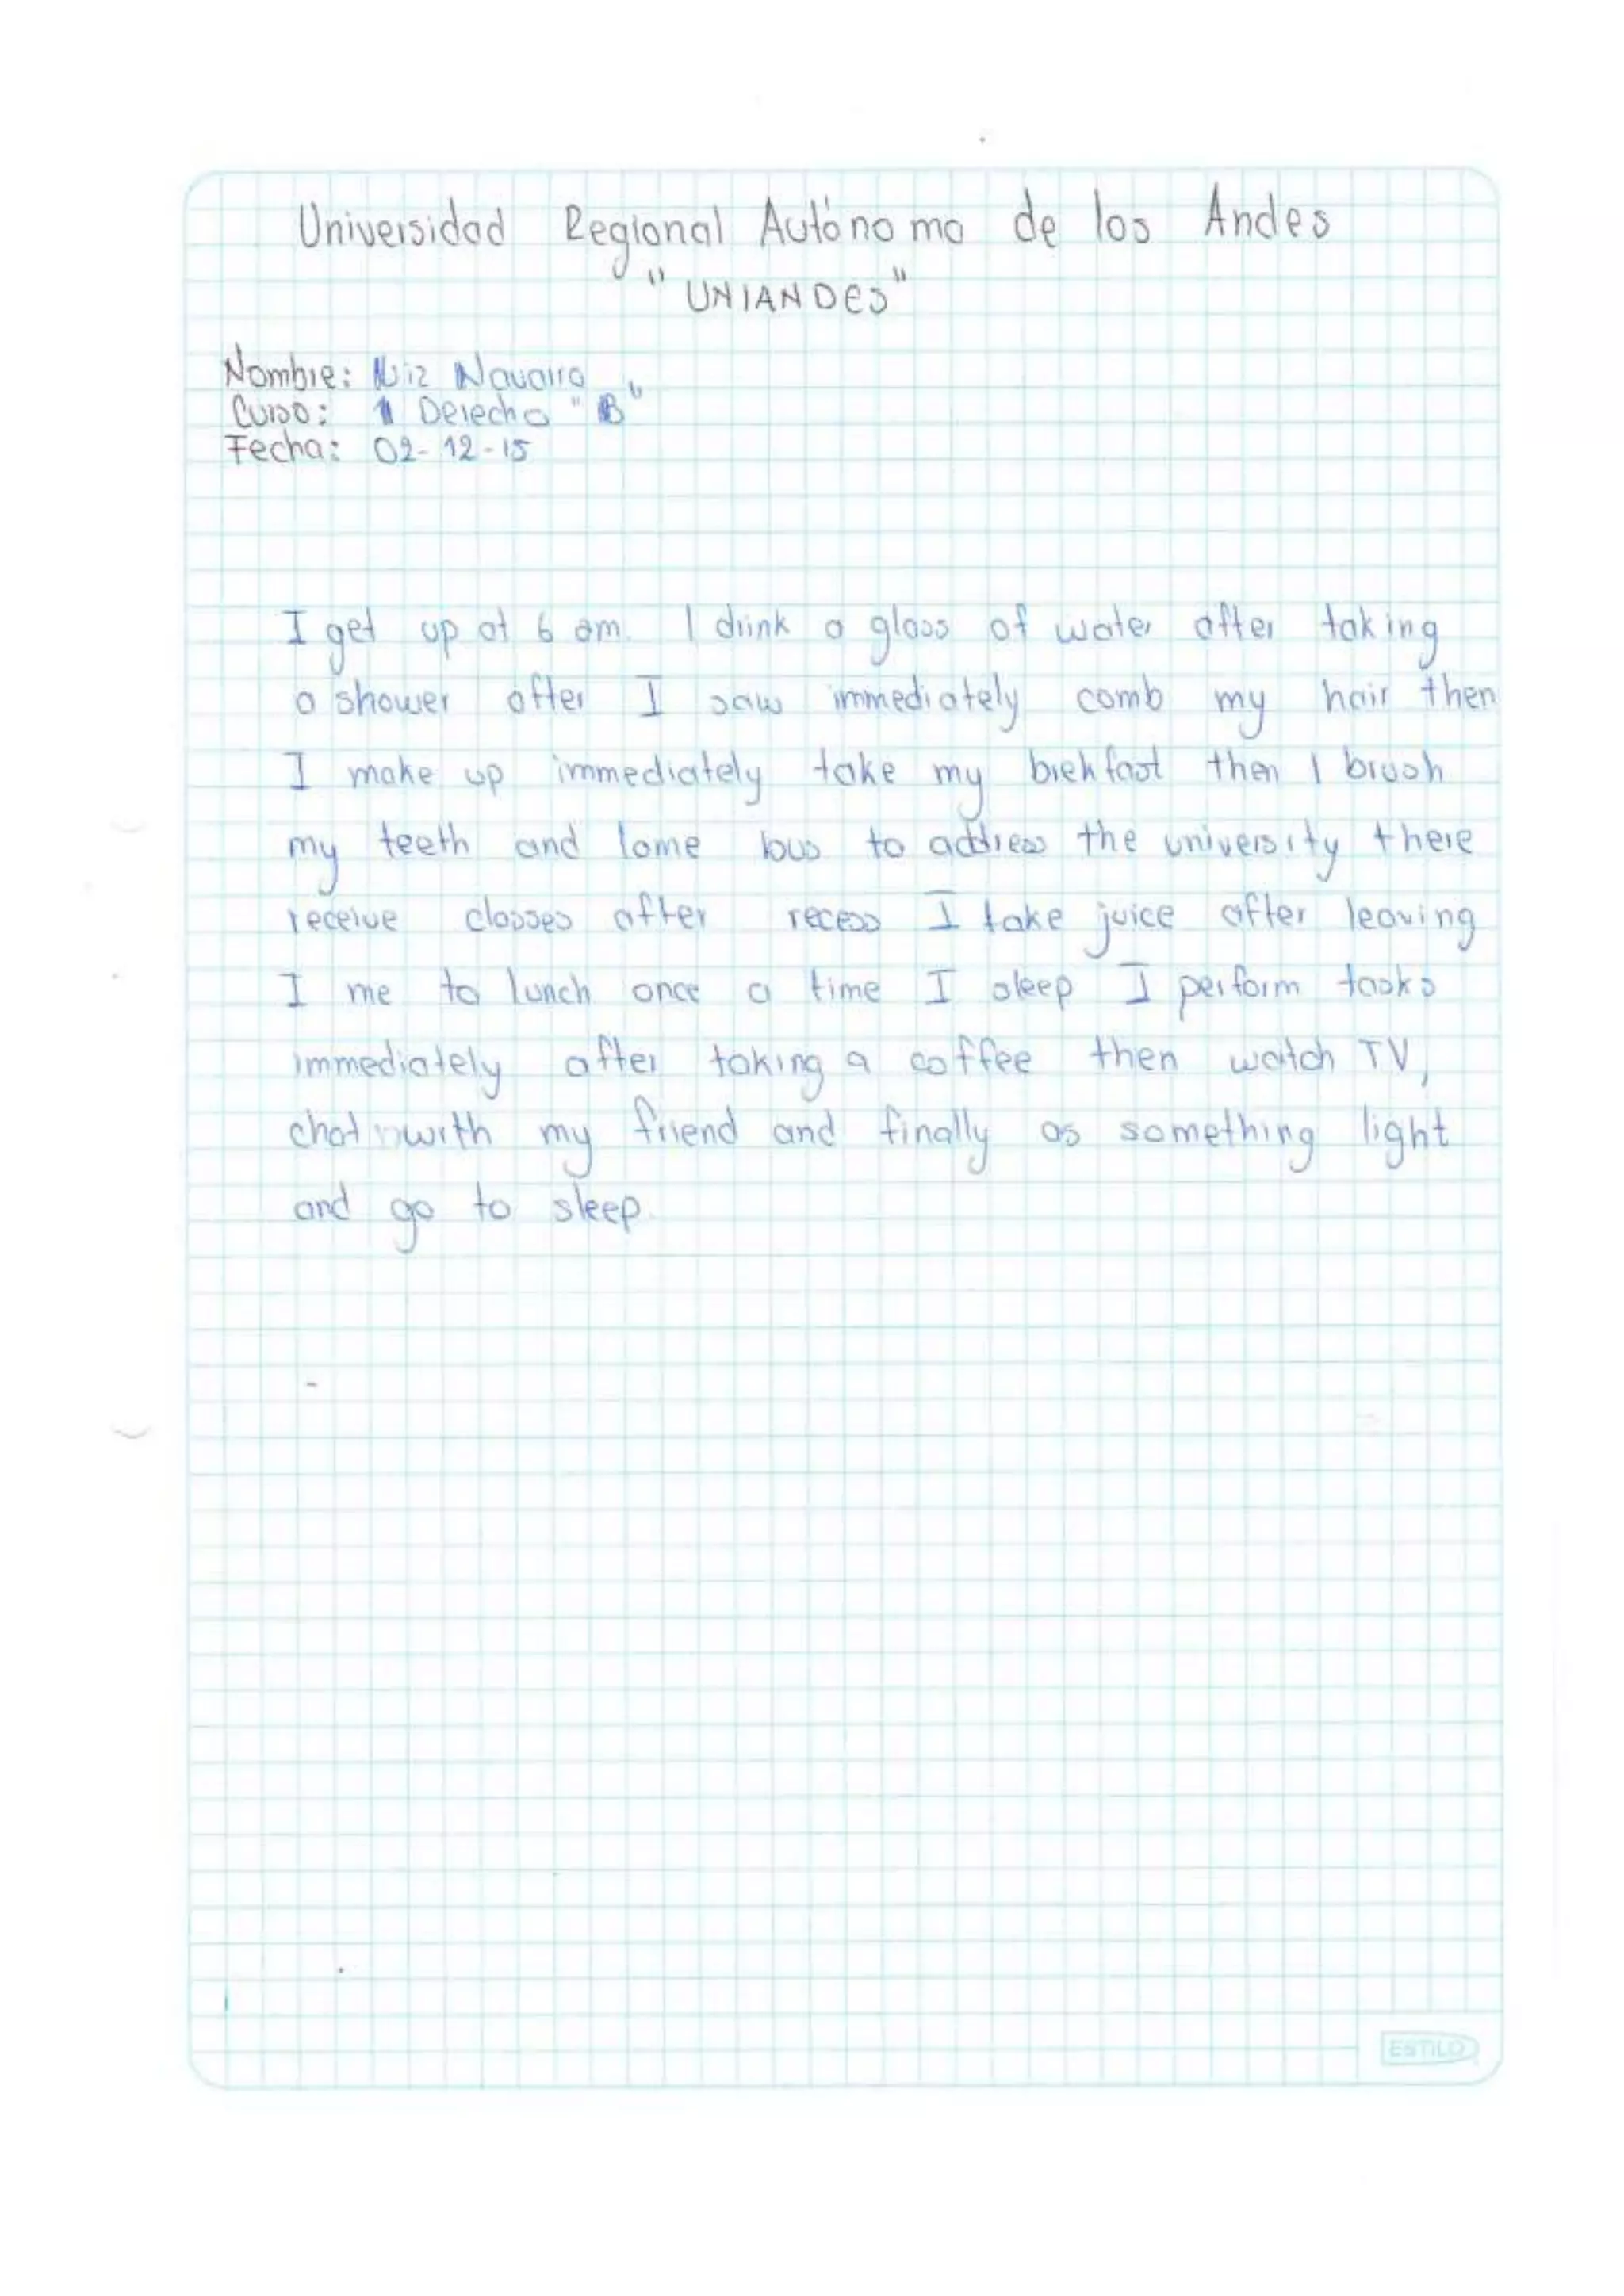 Universidad Regional Autónoma de los Andes
"UNIANDES"
Nombre: Niz Navarro
Curso: 1 Derecho "B"
Fecha: 02-12-15
I get up at 6 am. I drink a glass of water after taking
a shower after I saw immediately comb my hair then
I make up immediately take my brekfast then I brush
my teeth and lome bus to address the university there
receive classes after recess I take juice after leaving
I me to lunch once a time I sleep I perform tasks
immediately after taking a coffee then watch TV,
chat with my friend and finally as something light
and go to sleep.
ESTILO